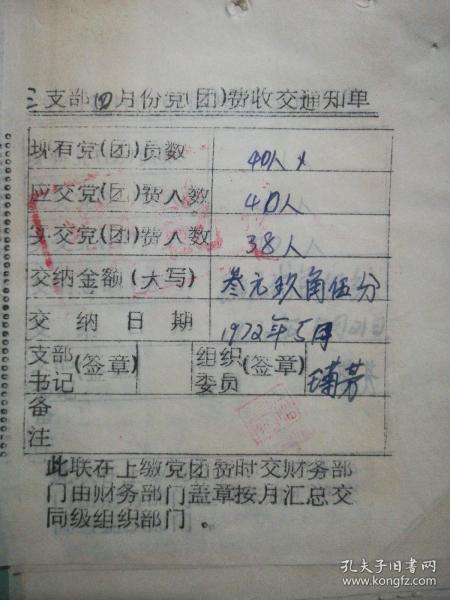 三支部四月份党(团)费收交通知单
现有党(团)员数 40人
应交党(团)费人数 40人
实交党(团)费人数 38人
交纳金额(大写) 叁元玖角伍分
交纳日期 1972年5月
支部书记 (签章) 组织委员 (签章)
备注
此联在上缴党团费时交财务部
门由财务部门盖章按月汇总交
同级组织部门。
孔夫子旧书网
www.kongfz.com